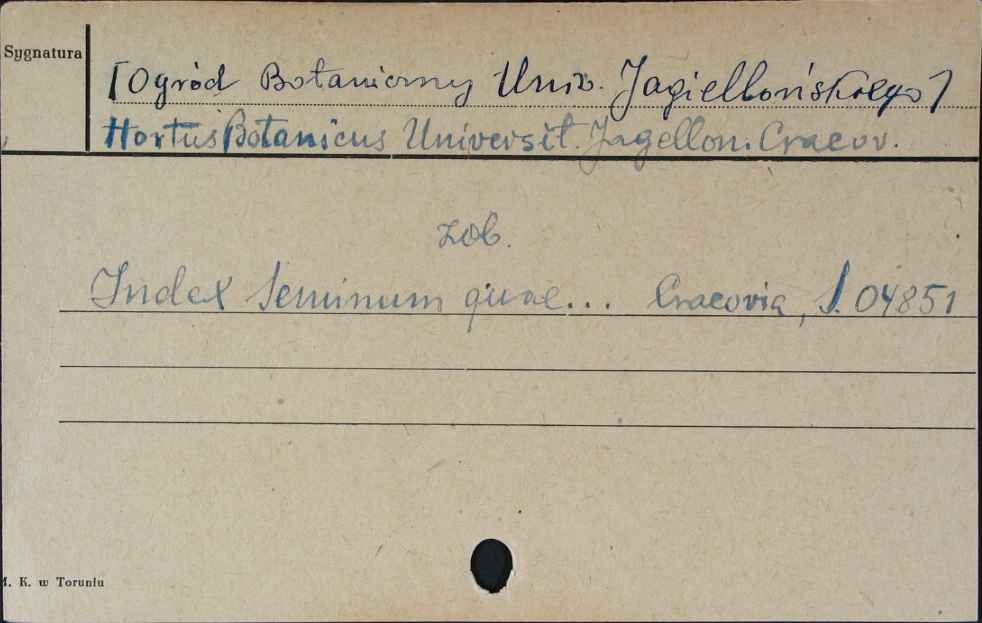 Sygnatura
[Ogród Botaniczny Univ. Jagiellońskiego]
Hortus Botanicus Universit. Jagellon. Cracov.
zob.
Index Seminum quae... Cracovia, S. 04851
M. K. w Toruniu